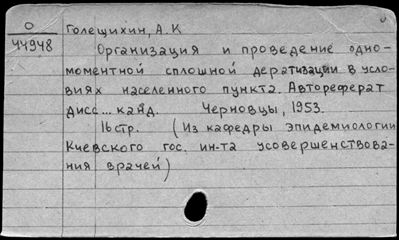 О
44948
Голещихин, А. К
Организация и проведение одно-
моментной сплошной дератизации в усло-
виях населенного пункта. Автореферат
дисс... канд. Черновцы, 1953.
16 стр. (Из кафедры эпидемиологии
Киевского гос. ин-та усовершенствова-
ния врачей)